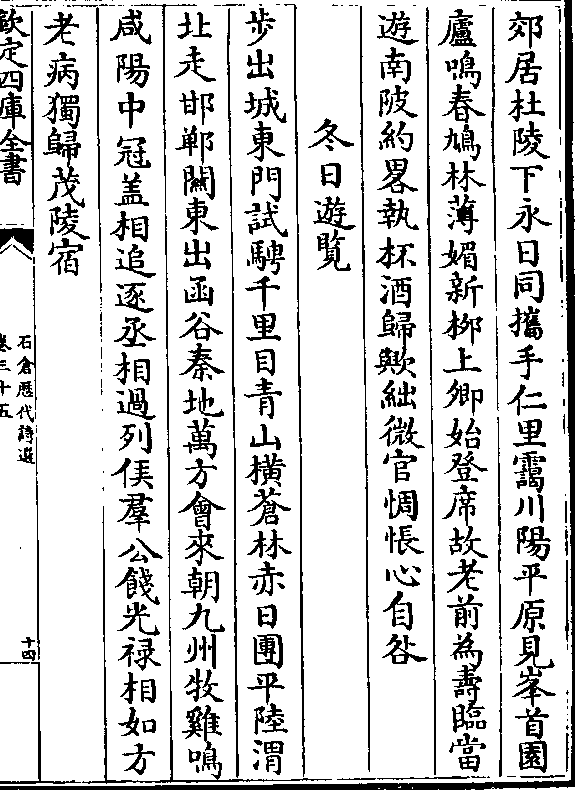 郊居杜陵下永日同攜手仁里靄川陽平原見峯首園
廬鳴春鳩林薄媚新栁上卿始登席故老前為壽臨當
遊南陂約畧執杯酒歸歟絀微官惆悵心自咎
冬日遊覽
步出城東門試騁千里目青山横蒼林赤日團平陸渭
北走邯鄲關東出函谷秦地萬方會來朝九州牧雞鳴
咸陽中冠盖相追逐丞相過列侯羣公餞光禄相如方
老病獨歸茂陵宿
欽定四庫全書
石倉歷代詩選
卷三十五
十四